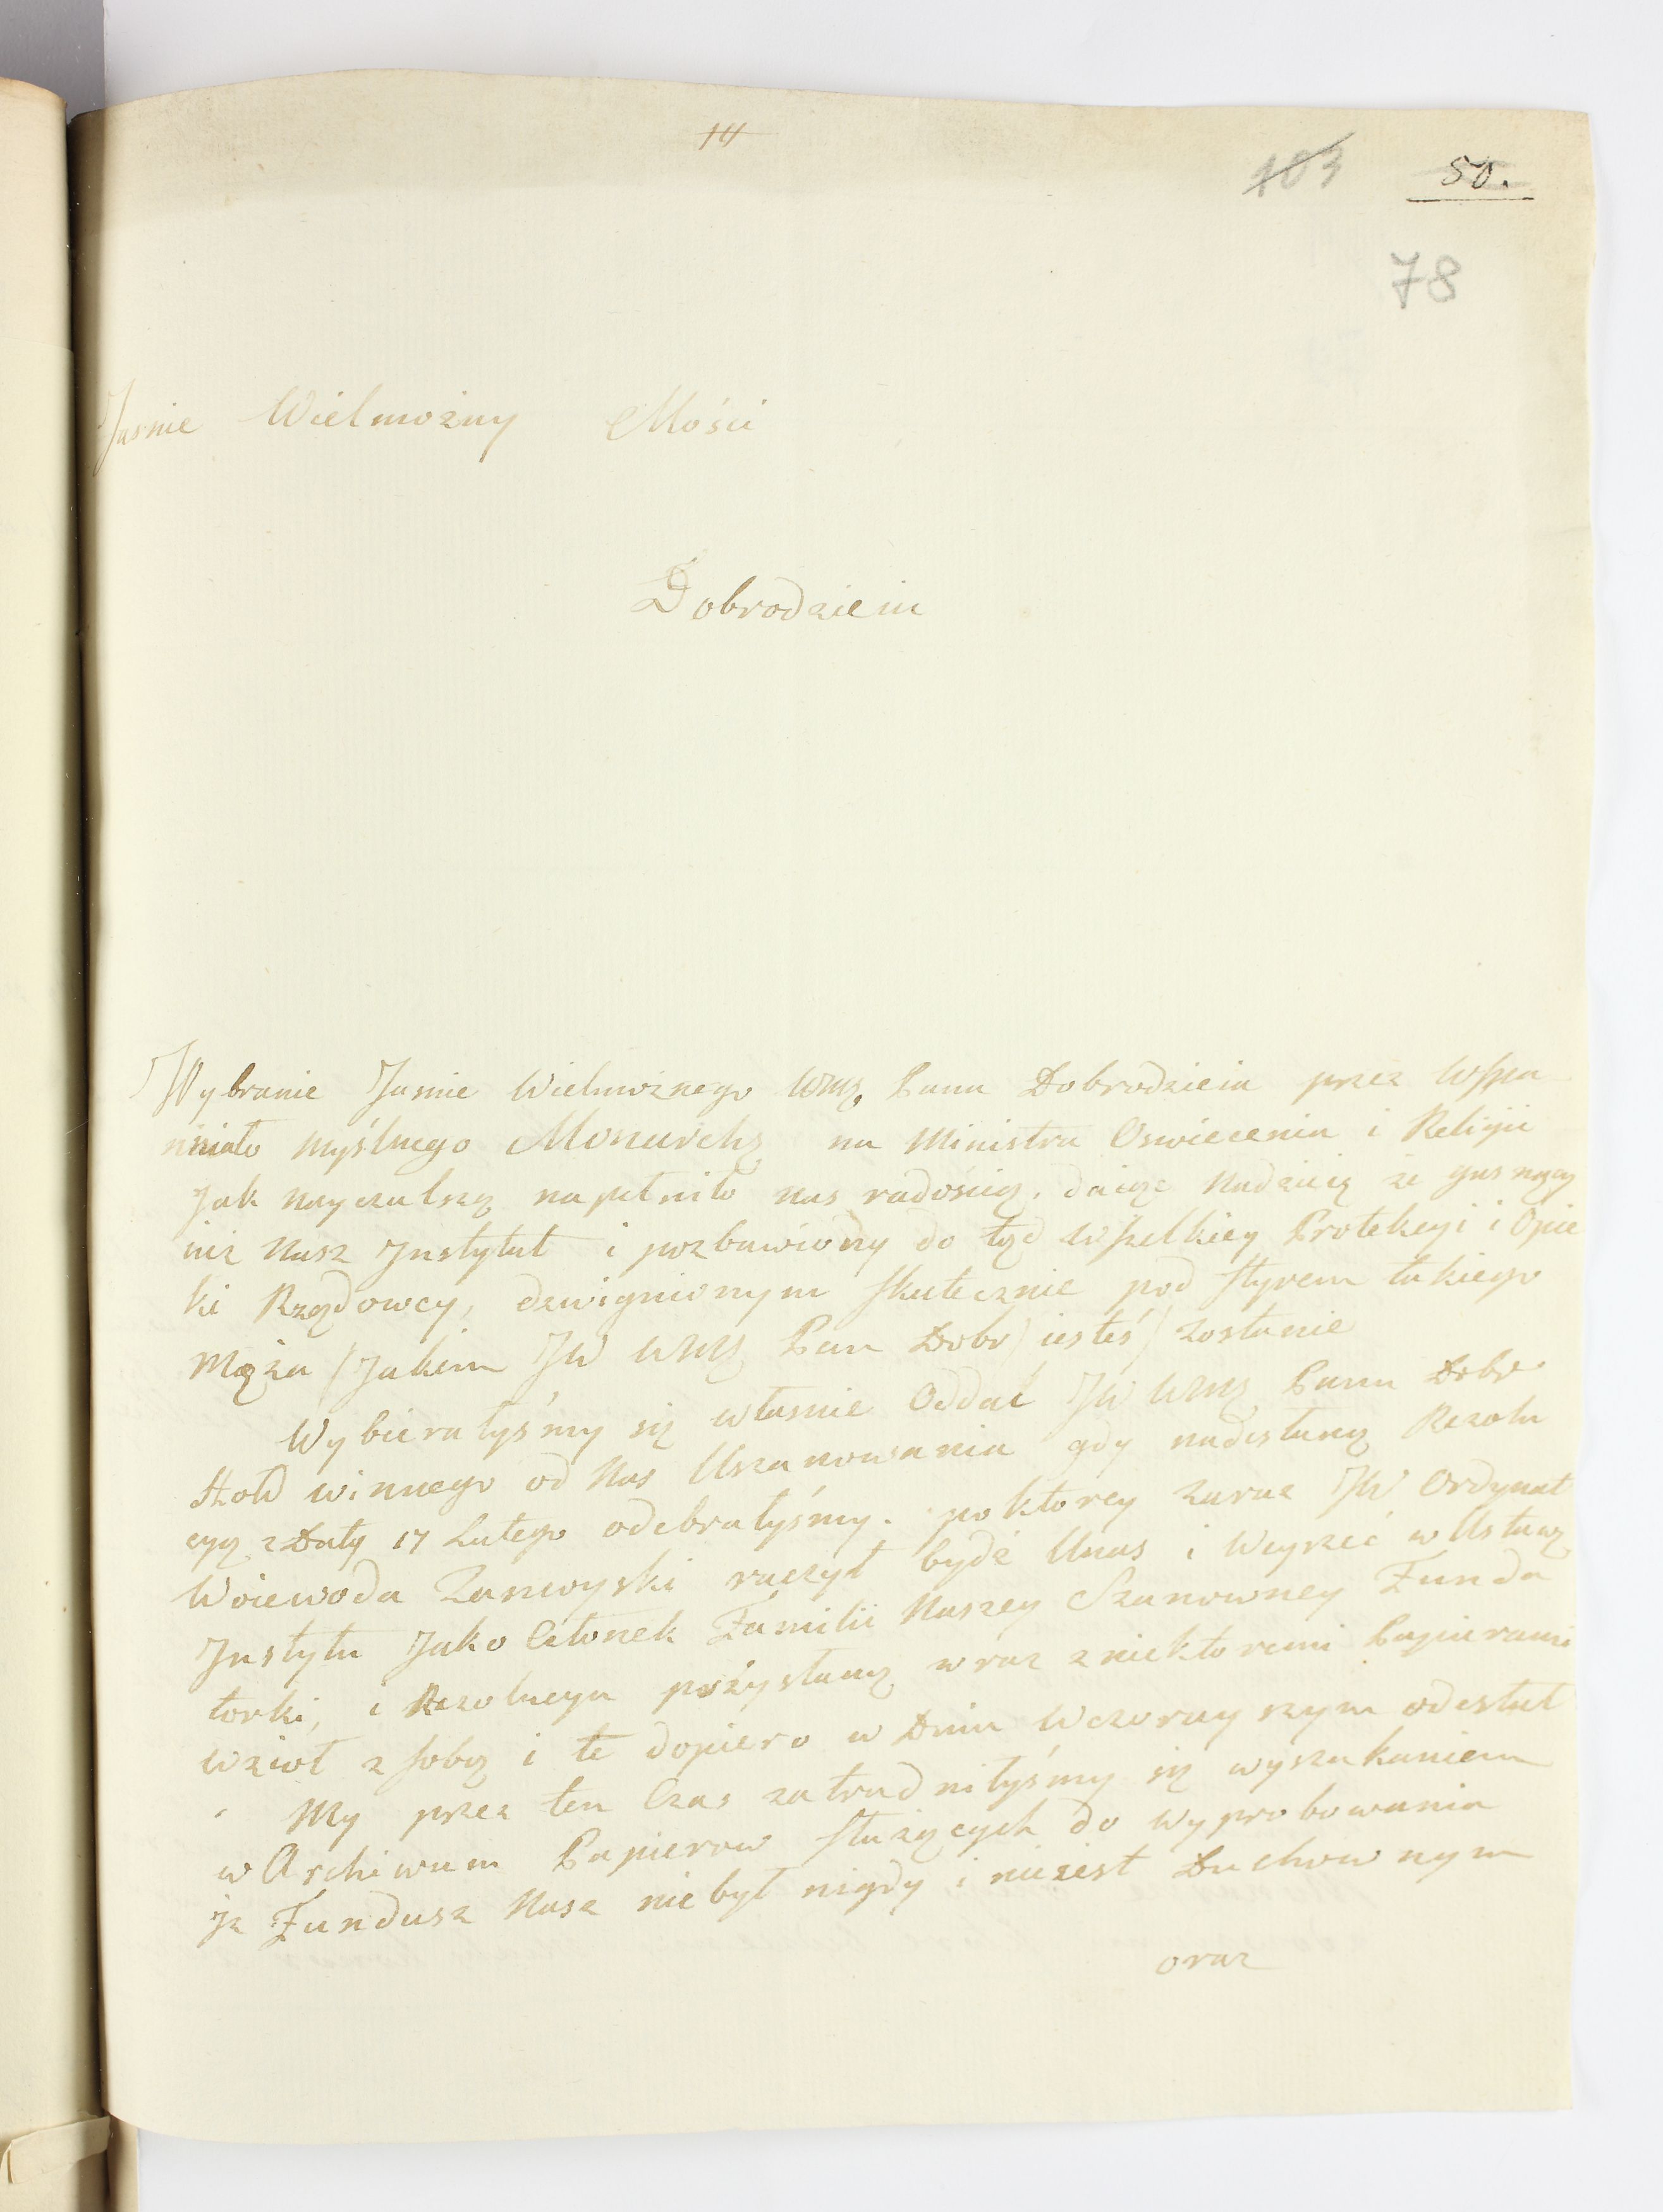 14
103 50.
78
Jasnie Wielmożny Mości
Dobrodzieiu
Wybranie Jasnie Wielmożnego WMę Pana Dobrodzieia przez Wspa
niało myślnego Monarchę na Ministra Oswiecenia i Religii
Jak nayczulszą napełniło nas radością, daiąc Nadzieię że gasnący
iuż Nasz Jnstytut i pozbawiony do tąd wszelkiey Protekcyi i Opie
ki Rządowey, dzwignionym skutecznie pod styrem takiego
Męża /Jakim JW WMę Pan Dobr) iesteś/ zostanie
Wybierałyśmy się własnie Oddać JW WMę Panu Dobr
Hołd winnego od Nas Uszanowania gdy nadesłaną Rezolu
cyą z Daty 17 Lutego odebrałyśmy. po ktorey zaraz JW Ordynat
Woiewoda Zamoyski raczył bydź Unas i Weyrzeć w Ustawę
Jnstytu Jako Członek Familii Naszey Szanowney Funda
torki, i Rezolucyą przysłaną wraz z niektoremi Papierami
wzioł z sobą i te dopiero w Dniu Wczorayszym odesłał
My przez ten Czas zatrudniłyśmy się wyszukaniem
w Archiwum Papierow służących do wyprobowania
Jż Fundusz Nasz niebył nigdy i nieiest Duchownym
oraz